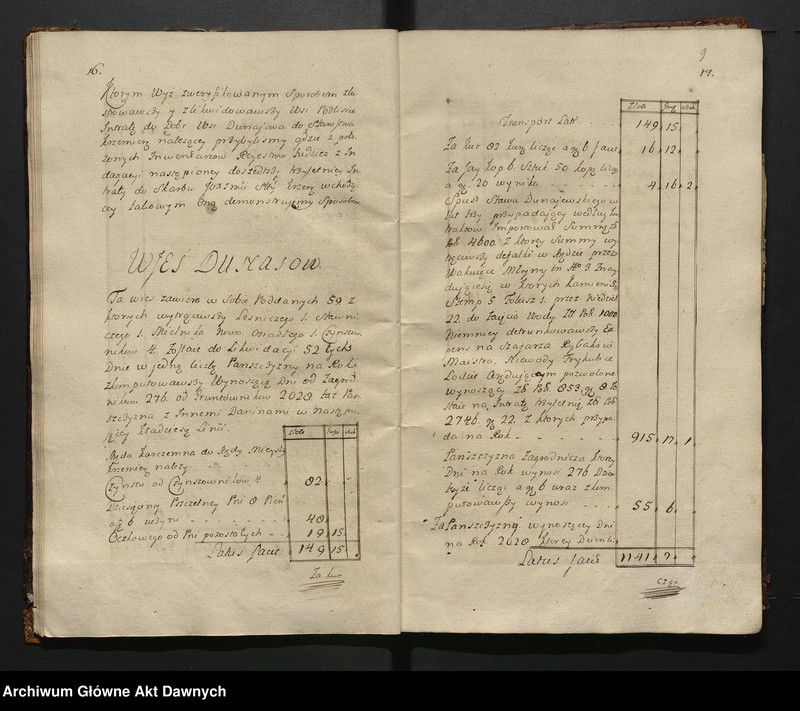 16.
Ktorym Wyż zweryfikowanym Sposobem zlu-
strowawszy y zlikwidowawszy Wsi Podlisce
Intratę do Dobr Wsi Dunajowa do Starostwa
Krzemien: należącey przybylismy gdzie z poło-
żonych Inwentarzow Regestrow tudziesz z In-
dagacyi nastąpioney doszedłszy trzyletniey In-
traty do Skarbu
cey talowym Onę demonstrujemy Sposobem
WIES DUNAIOW.
Ta wies zawiera w Sobie Poddanych 59 z
ktorych wytrąciwszy Lesniczego 1. Stawni-
czego 1. Mielnika Nowo Osiadłego 1. Czynszow-
nikow 4. zostaie do Likwidacyi 52 Tych
Dnie w jednę liczbę Panszczyzny na Rok
zkomputowawszy Wynoszące Dni od Zagrod-
nikow 276. od Gruntownikow 2028 Taż Pan-
szczyzna z Innemi Daninami w następu-
jącey Linii.
Złote Gro
Ręda Karczemna do Rędy Mieyskiey
Krzemien: należy
Czynszu od Czynszownikow 4 82
Dziesięciny Pszczelney Pni 8 Pień
a 6 wedyni 48
Oczkowego od Pni pozostałych 19 15
Latus facit 149 15
Za kur
9
17.
Złote Gro
Transport Lat: 149 15
Za kur 82 kurę licząc a gr 6 facit 16 12
Za Jay kop 6. Sztuk 50. kopę licząc
a gr. 20 wyniesie 4 16 2
Spust Stawu Dunajewskiego w
lat trzy przypadający według kon-
traktow Importował Summę zł
Pol. 4600 z ktorey Summy wy-
trąciwszy defalki w Rędzie przez
Wakuiące Młyny in Nro 3 Znay-
duiące się w ktorych Kamieni 5
Stemp 5 Folusz 1. przez Niedziel
22 do zajęcia Wody Zł Pol: 1000
Niemniey detrunkowawszy Ex-
pens na Szafarza Rybakow
Maistra, Niewody Trykubice
Łodzie Arędującym pozwolone
wynoszący Zł. Pol. 853 gr 8 Zo-
staie na Intratę trzyletnią Zł. Pol
2746. gr 22. z ktorych przypa-
da na Rok 915 17 1
Panszczyzna Zagrodnicza ktorey
Dni na Rok wynosi 276 Dzien
każdy licząc a gr 6 wraz zkom-
putowawszy wynosi 55 6
Za Panszczyznę wynoszącey Dni
na Rok 2028 ktorey Dzień li-
Latus facit 1141 7
cząc
Archiwum Główne Akt Dawnych